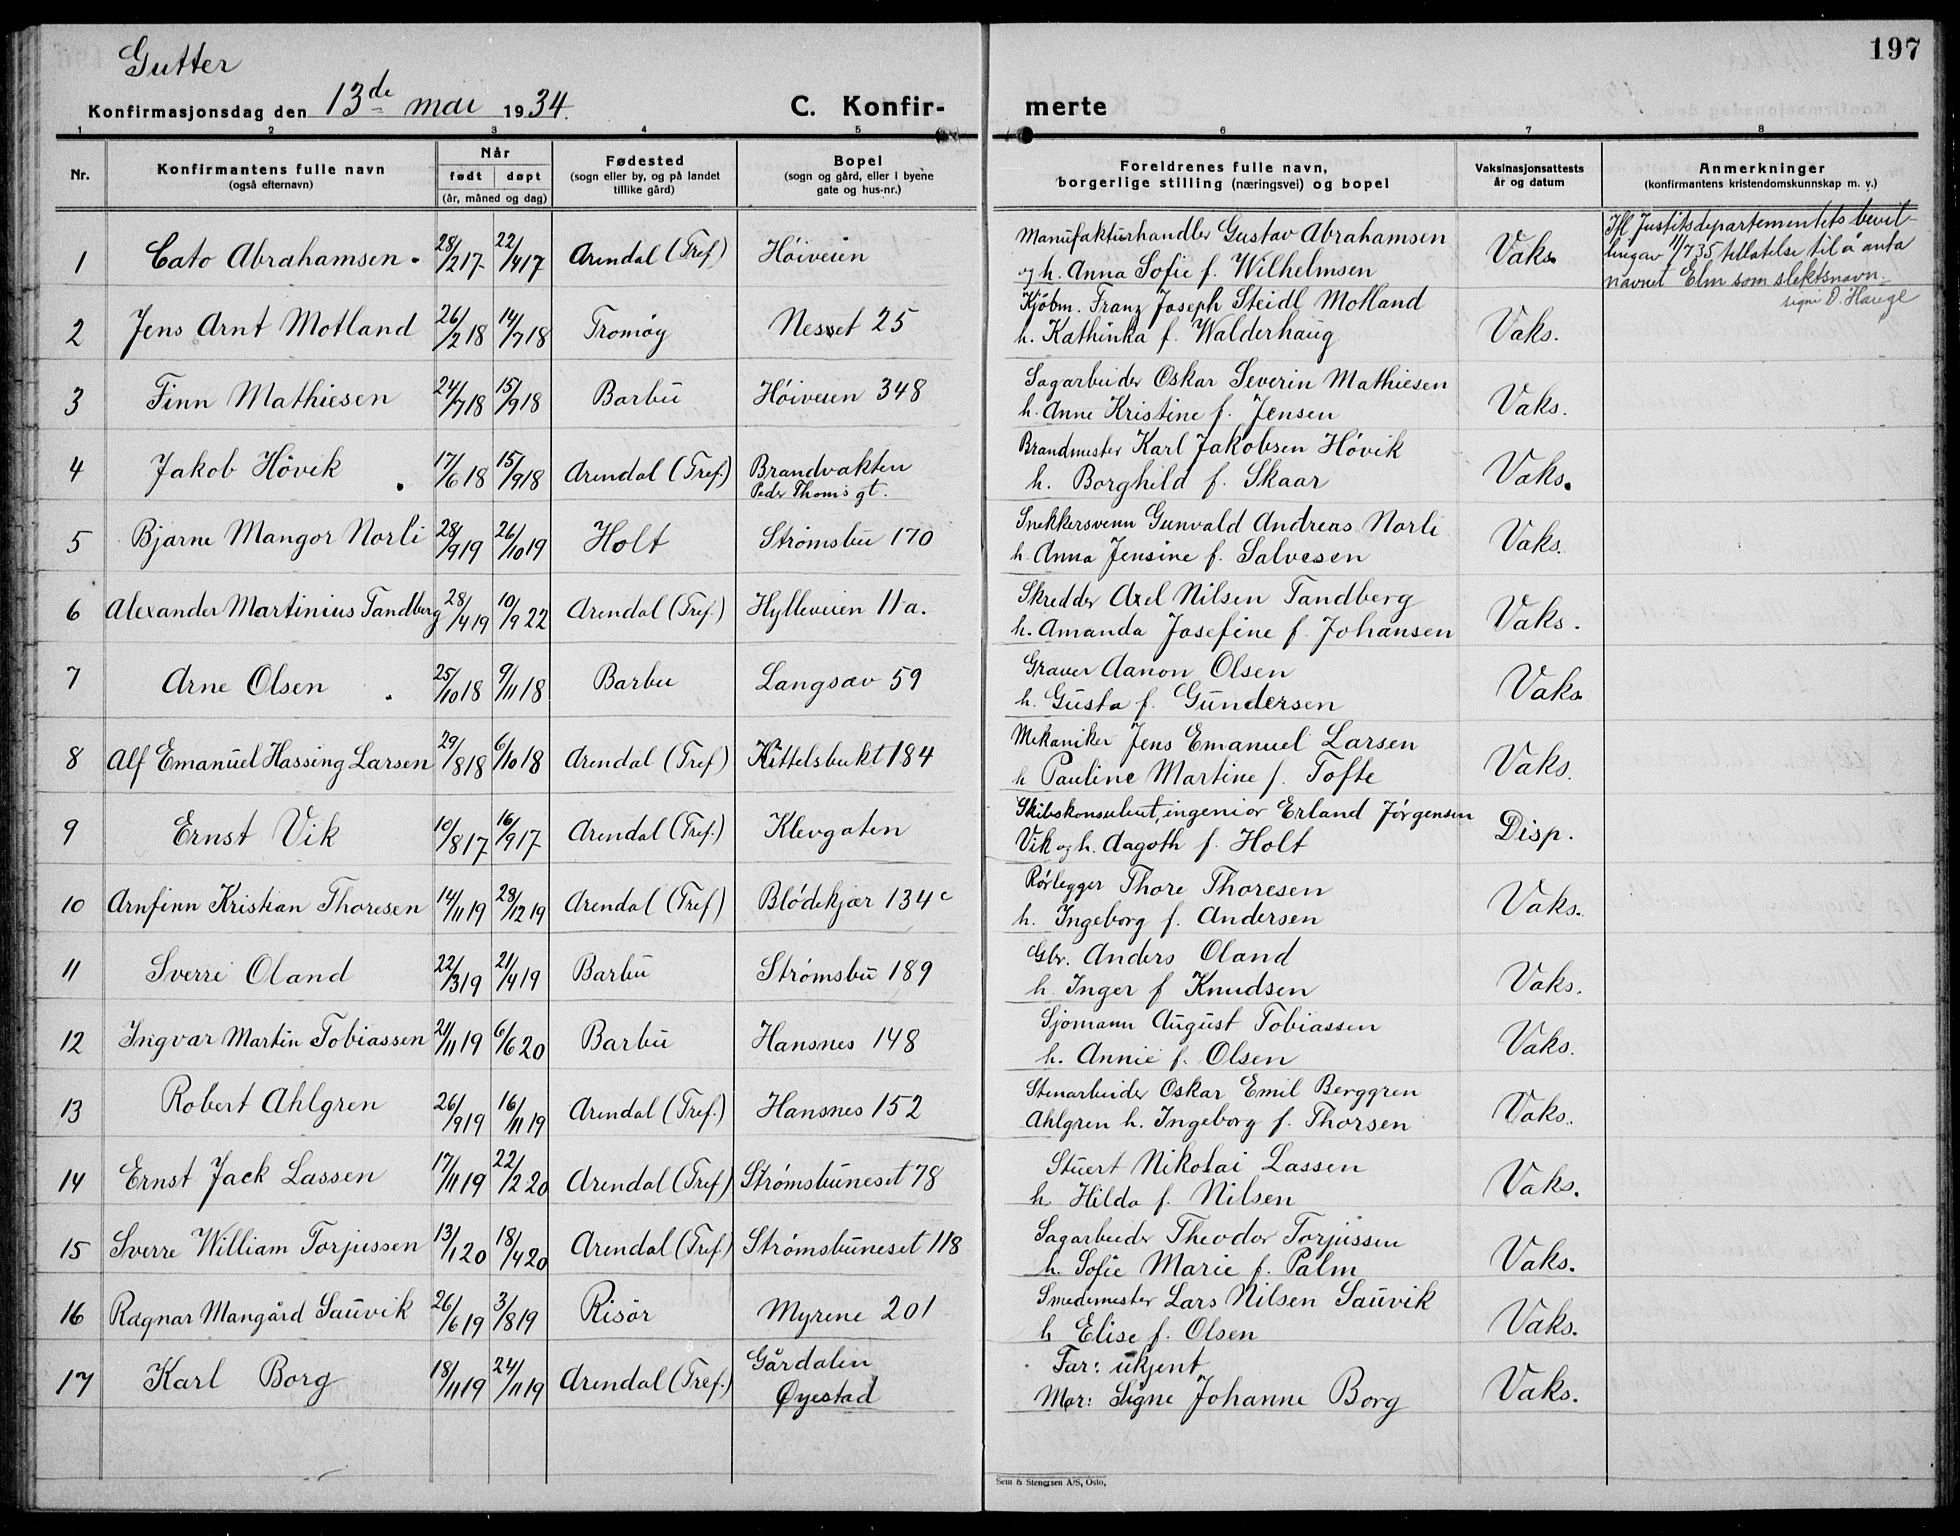 197
Gutter
Konfirmasjonsdag den 13de mai 1934.
C. Konfirmerte
1 2 3 4 5 6 7 8
Nr.
Konfirmantens fulle navn
(også efternavn)
Når
født døpt
(år, måned og dag)
Fødested
(sogn eller by, og på landet
tillike gård)
Bopel
(sogn og gård, eller i byene
gate og hus-nr.)
Foreldrenes fulle navn,
borgerlige stilling (næringsvei) og bopel
Vaksinasjonsattests
år og datum
Anmerkninger
(konfirmantens kristendomskunnskap m. v.)
1 Cato Abrahamsen 28/2 17 22/4 17 Arendal (Tref) Høiveien Manufakturhandler Gustav Abrahamsen
og h. Anna Sofie f. Wilhelmsen Vaks.
Ifl Justitsdepartementets bevil-
ling av 11/7 35, tillatelse til å anta
navnet Elm som slektsnavn.
sign D. Hauge
2 Jens Arnt Motland 26/2 18 14/7 18 Tromøy Nesset 25 Kjøbm. Franz Joseph Steidl Motland
h. Kathinka f. Walderhaug Vaks.
3 Finn Mathiesen 24/7 18 15/9 18 Barbu Høiveien 348 Sagarbeider Oskar Severin Mathiesen
h. Anne Kristine f. Jensen Vaks.
4 Jakob Hövik 17/6 18 15/9 18 Arendal (Tref.) Brandvakten
Peder Thoms gt. Brandmester Karl Jakobsen Hövik
h. Borghild f. Skaar Vaks.
5 Bjarne Mangor Norli 28/9 19 26/10 19 Holt Strømsbu 170 Snekkersvenn Gunvald Andreas Norli
h. Anna Jensine f. Salvesen Vaks.
6 Alexander Martinius Tandberg 28/4 19 10/9 22 Arendal (Tref.) Hylleveien 11a. Skredder Axel Nilsen Tandberg
h. Amanda Josefine f. Johansen Vaks.
7 Arne Olsen 25/10 18 9/11 18 Barbu Langsæv 59 Graver Aanon Olsen
h. Gusta f. Gundersen Vaks.
8 Alf Emanuel Hassing Larsen 29/8 18 6/10 18 Arendal (Tref) Kittelsbukt 184 Mekaniker Jens Emanuel Larsen
h Pauline Martine f. Tofte Vaks.
9 Ernst Vik 10/8 17 16/9 17 Arendal (Tref.) Klevgaten Skibskonsulent, ingeniør Erland Jørgensen
Vik og h. Aagoth f. Holt Disp.
10 Arnfinn Kristian Thoresen 14/11 19 28/12 19 Arendal (Tref) Blödekjær 134c Rørlegger Thore Thoresen
h. Ingeborg f. Andersen Vaks.
11 Sverre Oland 22/3 19 21/4 19 Barbu Strømsbu 189 Gbr. Anders Oland
h. Inger f Knudsen Vaks.
12 Ingvar Martin Tobiassen 21/11 19 6/6 20 Barbu Hansnes 148 Sjømann August Tobiassen
h. Annie f. Olsen Vaks.
13 Robert Ahlgren 26/9 19 16/11 19 Arendal (Tref.) Hansnes 152 Stenarbeider Oskar Emil Berggren
Ahlgren h. Ingeborg f. Thorsen Vaks.
14 Ernst Jack Lassen 17/11 19 22/2 20 Arendal (Tref) Strømsbuneset 78 Stuert Nikolai Lassen
h. Hilda f. Nilsen Vaks.
15 Sverre William Torjussen 13/1 20 18/4 20 Arendal (Tref.) Strømsbuneset 118 Sagarbeider Theodor Torjussen
h. Sofie Marie f. Palm Vaks.
16 Ragnar Mangård Sauvik 26/6 19 3/8 19 Risør Myrene 201 Smedemester Lars Nilsen Sauvik
h Elise f. Olsen Vaks.
17 Karl Borg 18/11 19 24/11 19 Arendal (Tref.) Gårdalen
Øyestad Far: ukjent
Mor: Signe Johanne Borg Vaks.
Sem & Stenersen A/S, Oslo.